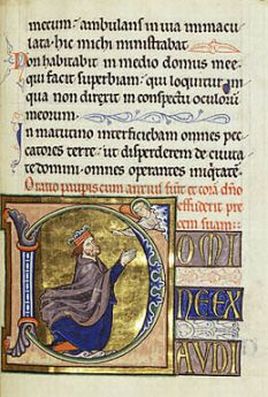 mecum: ambulans in via immacu
lata. hic michi ministrabat
Non habitabit in medio domus mee
qui facit superbiam: qui loquitur in
qua non direxit in conspectu oculorū
meorum.
In matutino interficiebam omnes pec
catores terre: ut disperderem de ciuita
te domini. omnes operantes iniqͥtatē.
Oratio paupis cum anxius fuit et corā dño
effuderit pre
cem suam:
DOMI
NE EX
AVDI